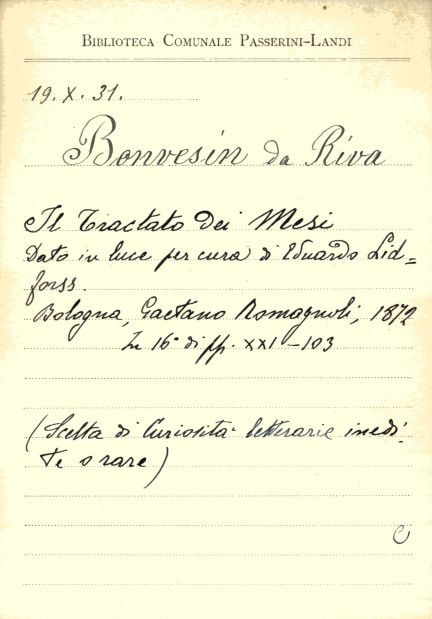 BIBLIOTECA COMUNALE PASSERINI-LANDI
19. X. 31.
Bonvesin da Riva
Il Tractato dei Mesi
Dato in luce per cura di Eduardo Lid=
forss.
Bologna, Gaetano Romagnoli, 1872
In 16° di pp. XXI-103
(Scelta di Curiosità letterarie inedi-
te o rare)
C